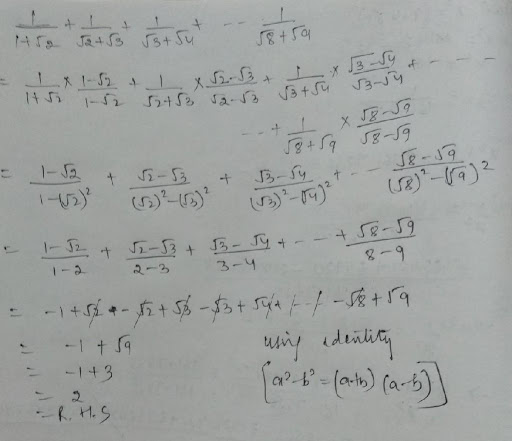 1/(1+√2) + 1/(√2+√3) + 1/(√3+√4) + -- 1/(√8+√9)
= 1/(1+√2) × (1-√2)/(1-√2) + 1/(√2+√3) × (√2-√3)/(√2-√3) + 1/(√3+√4) × (√3-√4)/(√3-√4) + - - -
--+ 1/(√8+√9) × (√8-√9)/(√8-√9)
= (1-√2)/(1-(√2)²) + (√2-√3)/((√2)²-(√3)²) + (√3-√4)/((√3)²-(√4)²) + -- (√8-√9)/((√8)²-(√9)²)
= (1-√2)/(1-2) + (√2-√3)/(2-3) + (√3-√4)/(3-4) + --- + (√8-√9)/(8-9)
= -1+√2 - √2+√3 -√3+√4+ -- -√8+√9
= -1+√9
= -1+3
= 2
= R.H.S
using identity
[a²-b²=(a+b)(a-b)]